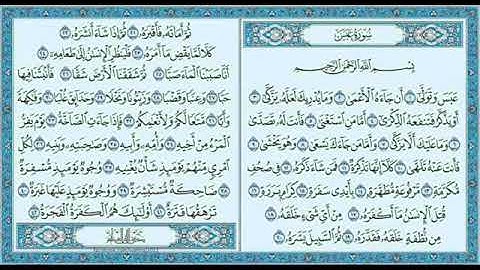 سُورَةُ عَبَسَ
بِسْمِ اللَّهِ الرَّحْمَٰنِ الرَّحِيمِ
عَبَسَ وَتَوَلَّىٰ ١ أَن جَاءَهُ الْأَعْمَىٰ ٢ وَمَا يُدْرِيكَ لَعَلَّهُ يَزَّكَّىٰ ٣
أَوْ يَذَّكَّرُ فَتَنفَعَهُ الذِّكْرَىٰ ٤ أَمَّا مَنِ اسْتَغْنَىٰ ٥ فَأَنتَ لَهُ تَصَدَّىٰ
٦ وَمَا عَلَيْكَ أَلَّا يَزَّكَّىٰ ٧ وَأَمَّا مَن جَاءَكَ يَسْعَىٰ ٨ وَهُوَ يَخْشَىٰ ٩
فَأَنتَ عَنْهُ تَلَهَّىٰ ١٠ كَلَّا إِنَّهَا تَذْكِرَةٌ ١١ فَمَن شَاءَ ذَكَرَهُ ١٢ فِي صُحُفٍ
مُّكَرَّمَةٍ ١٣ مَّرْفُوعَةٍ مُّطَهَّرَةٍ ١٤ بِأَيْدِي سَفَرَةٍ ١٥ كِرَامٍ بَرَرَةٍ ١٦
قُتِلَ الْإِنسَانُ مَا أَكْفَرَهُ ١٧ مِنْ أَيِّ شَيْءٍ خَلَقَهُ ١٨
مِن نُّطْفَةٍ خَلَقَهُ فَقَدَّرَهُ ١٩ ثُمَّ السَّبِيلَ يَسَّرَهُ ٢٠
ثُمَّ أَمَاتَهُ فَأَقْبَرَهُ ٢١ ثُمَّ إِذَا شَاءَ أَنشَرَهُ ٢٢
كَلَّا لَمَّا يَقْضِ مَا أَمَرَهُ ٢٣ فَلْيَنظُرِ الْإِنسَانُ إِلَىٰ طَعَامِهِ ٢٤
أَنَّا صَبَبْنَا الْمَاءَ صَبًّا ٢٥ ثُمَّ شَقَقْنَا الْأَرْضَ شَقًّا ٢٦ فَأَنبَتْنَا فِيهَا
حَبًّا ٢٧ وَعِنَبًا وَقَضْبًا ٢٨ وَزَيْتُونًا وَنَخْلًا ٢٩ وَحَدَائِقَ غُلْبًا ٣٠ وَفَاكِهَةً وَأَبًّا ٣١
مَّتَاعًا لَّكُمْ وَلِأَنْعَامِكُمْ ٣٢ فَإِذَا جَاءَتِ الصَّاخَّةُ ٣٣ يَوْمَ يَفِرُّ
الْمَرْءُ مِنْ أَخِيهِ ٣٤ وَأُمِّهِ وَأَبِيهِ ٣٥ وَصَاحِبَتِهِ وَبَنِيهِ ٣٦ لِكُلِّ
امْرِئٍ مِّنْهُمْ يَوْمَئِذٍ شَأْنٌ يُغْنِيهِ ٣٧ وُجُوهٌ يَوْمَئِذٍ مُّسْفِرَةٌ
٣٨ ضَاحِكَةٌ مُّسْتَبْشِرَةٌ ٣٩ وَوُجُوهٌ يَوْمَئِذٍ عَلَيْهَا غَبَرَةٌ ٤٠
تَرْهَقُهَا قَتَرَةٌ ٤١ أُولَٰئِكَ هُمُ الْكَفَرَةُ الْفَجَرَةُ ٤٢